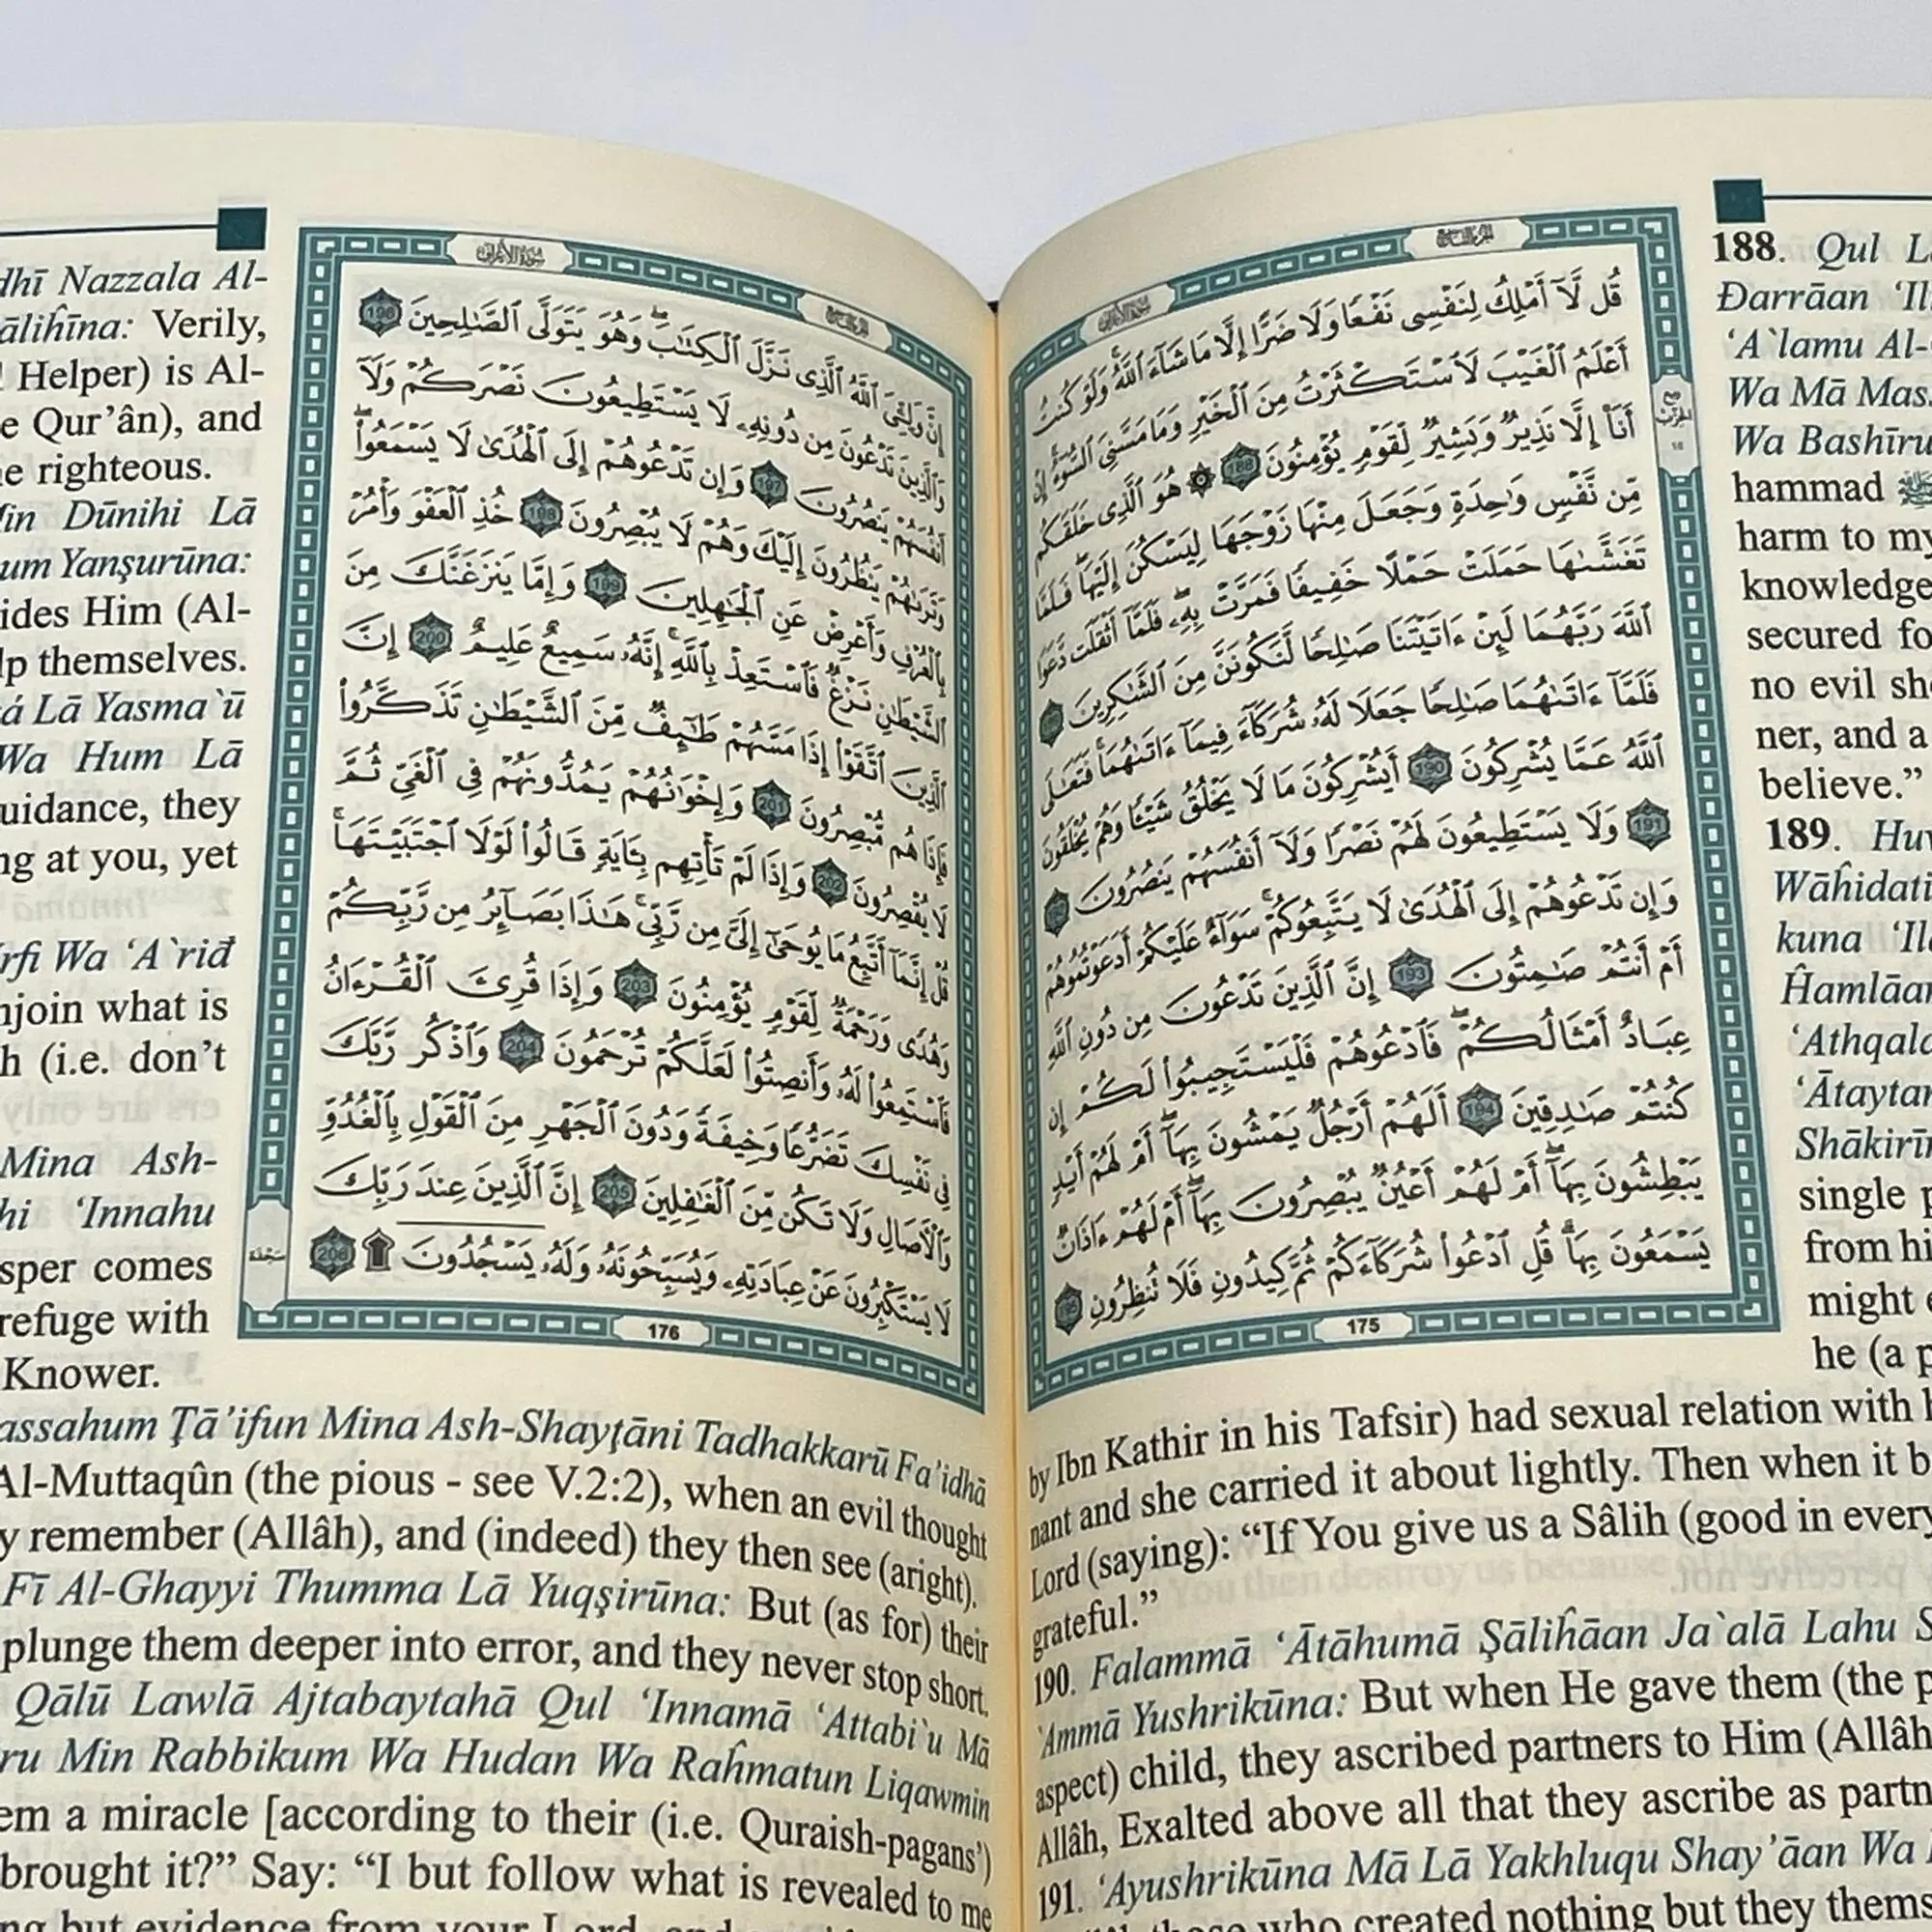 سورة الأعراف
الجزء التاسع
قُل لَّآ أَمْلِكُ لِنَفْسِى نَفْعًا وَلَا ضَرًّا إِلَّا مَا شَآءَ ٱللَّهُ ۚ وَلَوْ كُنتُ
أَعْلَمُ ٱلْغَيْبَ لَٱسْتَكْثَرْتُ مِنَ ٱلْخَيْرِ وَمَا مَسَّنِىَ ٱلسُّوٓءُ ۚ إِنْ
أَنَا۠ إِلَّا نَذِيرٌ وَبَشِيرٌ لِّقَوْمٍ يُؤْمِنُونَ 188 ۞ هُوَ ٱلَّذِى خَلَقَكُم
مِّن نَّفْسٍ وَٰحِدَةٍ وَجَعَلَ مِنْهَا زَوْجَهَا لِيَسْكُنَ إِلَيْهَا ۖ فَلَمَّا
تَغَشَّىٰهَا حَمَلَتْ حَمْلًا خَفِيفًا فَمَرَّتْ بِهِۦ ۖ فَلَمَّآ أَثْقَلَت دَّعَوَا
ٱللَّهَ رَبَّهُمَا لَئِنْ ءَاتَيْتَنَا صَٰلِحًا لَّنَكُونَنَّ مِنَ ٱلشَّٰكِرِينَ
فَلَمَّآ ءَاتَىٰهُمَا صَٰلِحًا جَعَلَا لَهُۥ شُرَكَآءَ فِيمَآ ءَاتَىٰهُمَا ۚ فَتَعَٰلَى
ٱللَّهُ عَمَّا يُشْرِكُونَ 190 أَيُشْرِكُونَ مَا لَا يَخْلُقُ شَيْـًٔا وَهُمْ يُخْلَقُونَ
191 وَلَا يَسْتَطِيعُونَ لَهُمْ نَصْرًا وَلَآ أَنفُسَهُمْ يَنصُرُونَ
وَإِن تَدْعُوهُمْ إِلَى ٱلْهُدَىٰ لَا يَتَّبِعُوكُمْ ۚ سَوَآءٌ عَلَيْكُمْ أَدَعَوْتُمُوهُمْ
أَمْ أَنتُمْ صَٰمِتُونَ 193 إِنَّ ٱلَّذِينَ تَدْعُونَ مِن دُونِ ٱللَّهِ
عِبَادٌ أَمْثَالُكُمْ ۖ فَٱدْعُوهُمْ فَلْيَسْتَجِيبُوا۟ لَكُمْ إِن
كُنتُمْ صَٰدِقِينَ 194 أَلَهُمْ أَرْجُلٌ يَمْشُونَ بِهَآ ۖ أَمْ لَهُمْ أَيْدٍ
يَبْطِشُونَ بِهَآ ۖ أَمْ لَهُمْ أَعْيُنٌ يُبْصِرُونَ بِهَآ ۖ أَمْ لَهُمْ ءَاذَانٌ
يَسْمَعُونَ بِهَا ۗ قُلِ ٱدْعُوا۟ شُرَكَآءَكُمْ ثُمَّ كِيدُونِ فَلَا تُنظِرُونِ 195
175
188. Qul L
Đarrāan ‘Il
‘A`lamu Al-
Wa Mā Mas
Wa Bashīru
hammad ﷺ
harm to my
knowledge
secured fo
no evil sh
ner, and a
believe.”
189. Huw
Wāĥidati
kuna ‘Il
Ĥamlāan
‘Athqala
‘Ātaytan
Shākirīn
single p
from hi
might e
he (a p
by Ibn Kathir in his Tafsir) had sexual relation with h
nant and she carried it about lightly. Then when it b
Lord (saying): “If You give us a Sâlih (good in every
grateful.”
190. Falammā ‘Ātāhumā Şāliĥāan Ja`alā Lahu S
‘Ammā Yushrikūna: But when He gave them (the p
aspect) child, they ascribed partners to Him (Allâh
Allâh, Exalted above all that they ascribe as partn
191. ‘Ayushrikūna Mā Lā Yakhluqu Shay’āan Wa
those who created nothing but they thems
سورة الأعراف
الجزء التاسع
إِنَّ وَلِـِّۧىَ ٱللَّهُ ٱلَّذِى نَزَّلَ ٱلْكِتَٰبَ ۖ وَهُوَ يَتَوَلَّى ٱلصَّٰلِحِينَ 196
وَٱلَّذِينَ تَدْعُونَ مِن دُونِهِۦ لَا يَسْتَطِيعُونَ نَصْرَكُمْ وَلَآ
أَنفُسَهُمْ يَنصُرُونَ 197 وَإِن تَدْعُوهُمْ إِلَى ٱلْهُدَىٰ لَا يَسْمَعُوا۟ ۖ
وَتَرَىٰهُمْ يَنظُرُونَ إِلَيْكَ وَهُمْ لَا يُبْصِرُونَ 198 خُذِ ٱلْعَفْوَ وَأْمُرْ
بِٱلْعُرْفِ وَأَعْرِضْ عَنِ ٱلْجَٰهِلِينَ 199 وَإِمَّا يَنزَغَنَّكَ مِنَ
ٱلشَّيْطَٰنِ نَزْغٌ فَٱسْتَعِذْ بِٱللَّهِ ۚ إِنَّهُۥ سَمِيعٌ عَلِيمٌ 200 إِنَّ
ٱلَّذِينَ ٱتَّقَوْا۟ إِذَا مَسَّهُمْ طَٰٓئِفٌ مِّنَ ٱلشَّيْطَٰنِ تَذَكَّرُوا۟
فَإِذَا هُم مُّبْصِرُونَ 201 وَإِخْوَٰنُهُمْ يَمُدُّونَهُمْ فِى ٱلْغَىِّ ثُمَّ
لَا يُقْصِرُونَ 202 وَإِذَا لَمْ تَأْتِهِم بِـَٔايَةٍ قَالُوا۟ لَوْلَا ٱجْتَبَيْتَهَا ۚ
قُلْ إِنَّمَآ أَتَّبِعُ مَا يُوحَىٰٓ إِلَىَّ مِن رَّبِّى ۚ هَٰذَا بَصَآئِرُ مِن رَّبِّكُمْ
وَهُدًى وَرَحْمَةٌ لِّقَوْمٍ يُؤْمِنُونَ 203 وَإِذَا قُرِئَ ٱلْقُرْءَانُ
فَٱسْتَمِعُوا۟ لَهُۥ وَأَنصِتُوا۟ لَعَلَّكُمْ تُرْحَمُونَ 204 وَٱذْكُر رَّبَّكَ
فِى نَفْسِكَ تَضَرُّعًا وَخِيفَةً وَدُونَ ٱلْجَهْرِ مِنَ ٱلْقَوْلِ بِٱلْغُدُوِّ
وَٱلْءَاصَالِ وَلَا تَكُن مِّنَ ٱلْغَٰفِلِينَ 205 إِنَّ ٱلَّذِينَ عِندَ رَبِّكَ
لَا يَسْتَكْبِرُونَ عَنْ عِبَادَتِهِۦ وَيُسَبِّحُونَهُۥ وَلَهُۥ يَسْجُدُونَ ۩ 206
سجدة
176
dhī Nazzala Al-
āliĥīna: Verily,
Helper) is Al-
e Qur’ân), and
e righteous.
in Dūnihi Lā
um Yanşurūna:
ides Him (Al-
lp themselves.
á Lā Yasma`ū
Wa Hum Lā
uidance, they
ng at you, yet
rfi Wa ‘A`riđ
njoin what is
h (i.e. don’t
Mina Ash-
hi ‘Innahu
sper comes
refuge with
Knower.
assahum Ţā’ifun Mina Ash-Shayţāni Tadhakkarū Fa’idhā
Al-Muttaqûn (the pious - see V.2:2), when an evil thought
y remember (Allâh), and (indeed) they then see (aright).
Fī Al-Ghayyi Thumma Lā Yuqşirūna: But (as for) their
plunge them deeper into error, and they never stop short.
Qālū Lawlā Ajtabaytahā Qul ‘Innamā ‘Attabi`u Mā
ru Min Rabbikum Wa Hudan Wa Raĥmatun Liqawmin
em a miracle [according to their (i.e. Quraish-pagans’)
brought it?” Say: “I but follow what is revealed to me
ng but evidence from your Lord, and